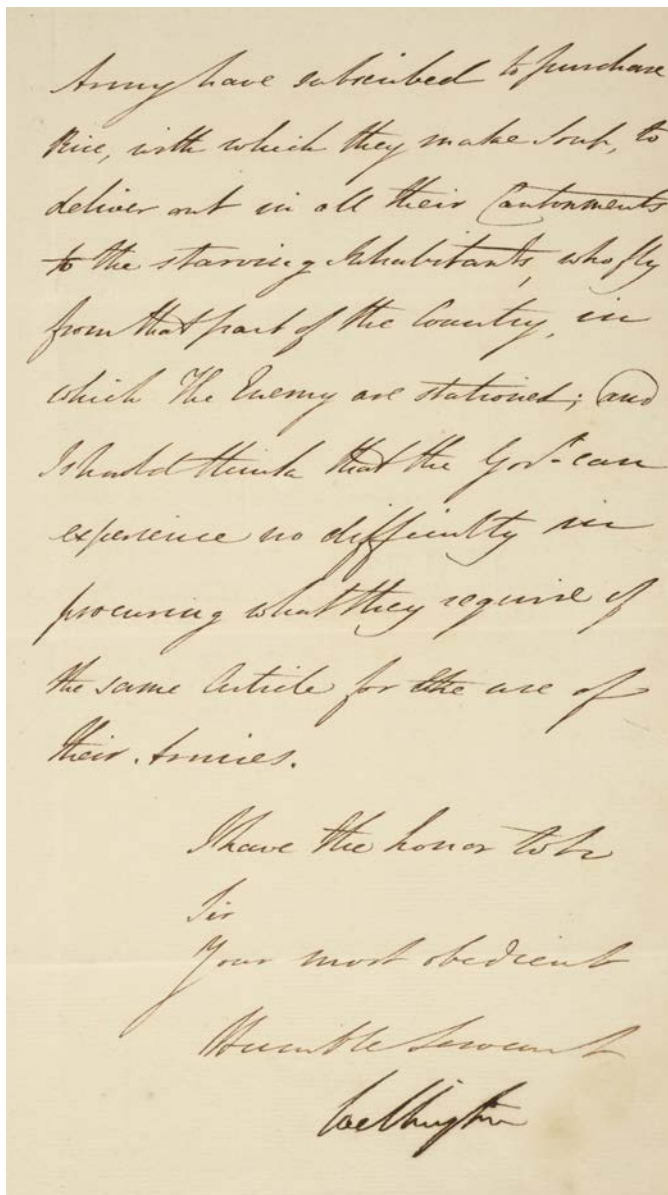 Army have subscribed to purchase
Rice, with which they make Soup, to
deliver out in all their Cantonments
to the starving Inhabitants, who fly
from that part of the Country, in
which The Enemy are stationed; and
I should think that the Govt. can
experience no difficulty in
procuring what they require of
the same Article for the use of
their Armies.
I have the honor to be
Sir
Your most obedient
Humble Servant
Wellington